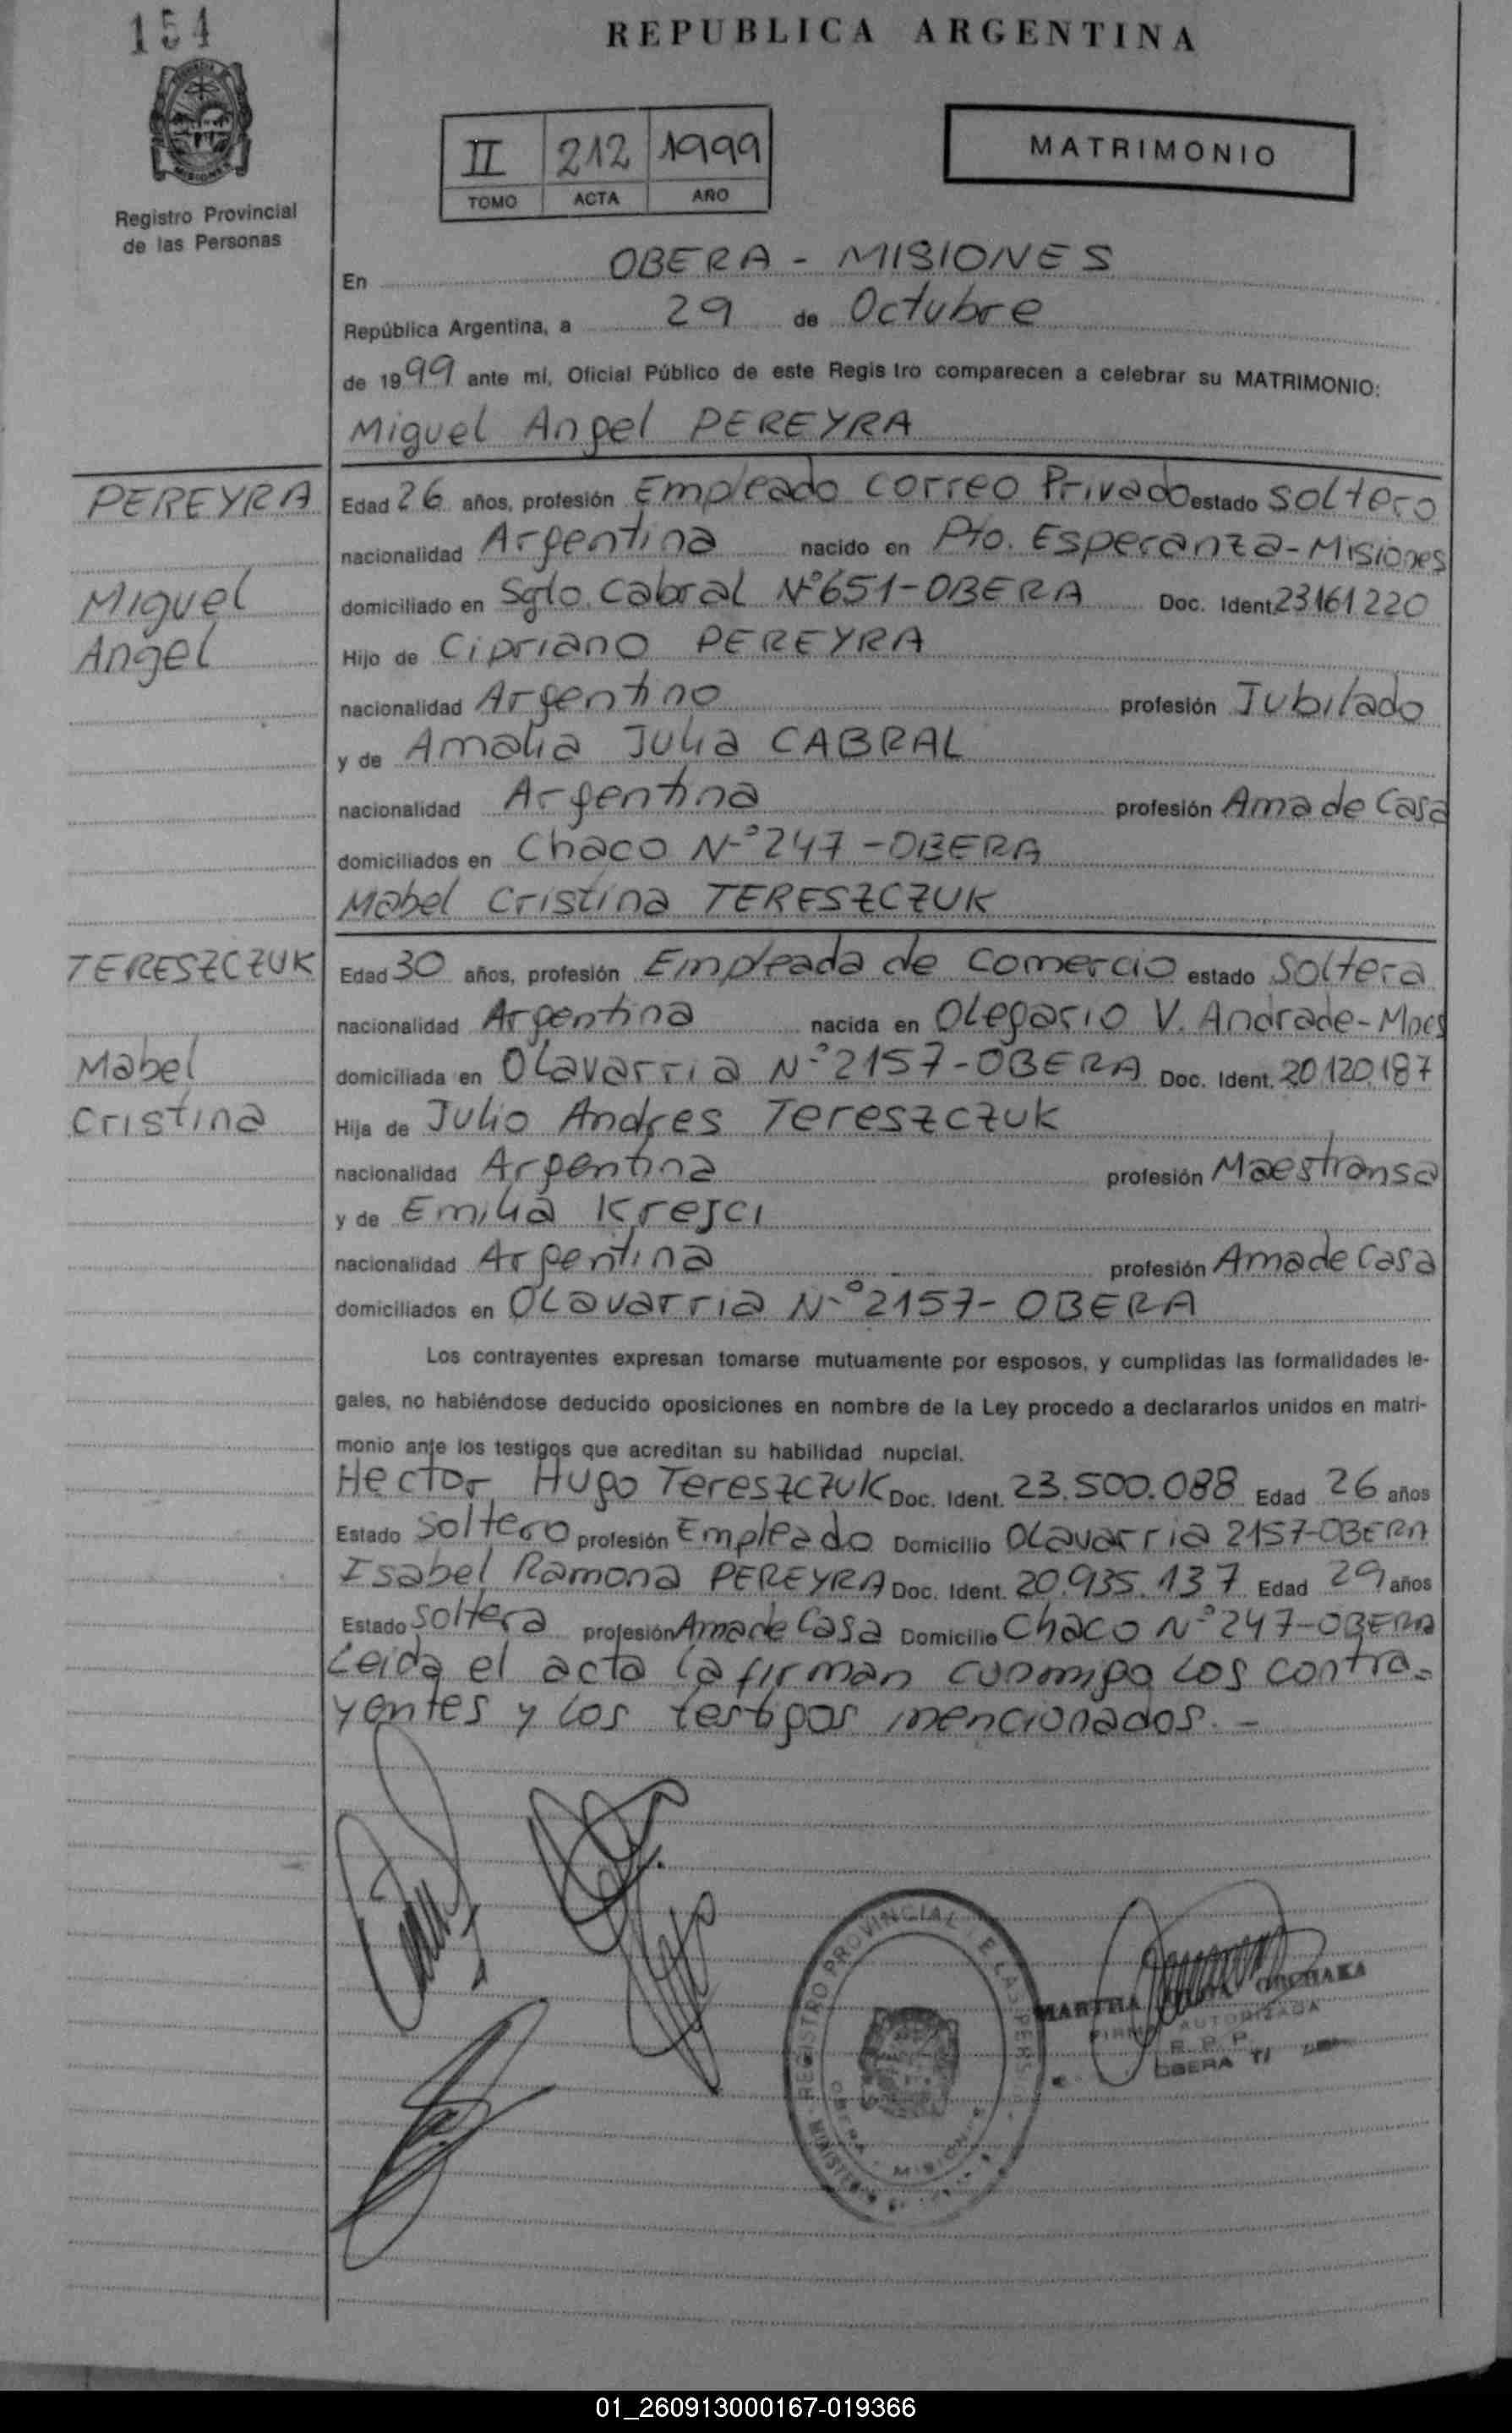 154
REPUBLICA ARGENTINA
II 212 1999
TOMO ACTA AÑO
MATRIMONIO
Registro Provincial
de las Personas
En OBERA - MISIONES
República Argentina, a 29 de Octubre
de 1999 ante mí, Oficial Público de este Registro comparecen a celebrar su MATRIMONIO:
Miguel Angel PEREYRA
PEREYRA
Miguel
Angel
Edad 26 años, profesión Empleado Correo Privado estado Soltero
nacionalidad Argentina nacido en Pto. Esperanza-Misiones
domiciliado en Sgto. Cabral Nº 651-OBERA Doc. Ident. 23161220
Hijo de Cipriano PEREYRA
nacionalidad Argentino profesión Jubilado
y de Amalia Julia CABRAL
nacionalidad Argentina profesión Ama de Casa
domiciliados en Chaco Nº 247 - OBERA
Mabel Cristina TERESZCZUK
TERESZCZUK
Mabel
Cristina
Edad 30 años, profesión Empleada de Comercio estado Soltera
nacionalidad Argentina nacida en Olegario V. Andrade-Mnes
domiciliada en Olavarria Nº 2157-OBERA Doc. Ident. 20.120.187
Hija de Julio Andres Tereszczuk
nacionalidad Argentina profesión Maestransa
y de Emilia Kresci
nacionalidad Argentina profesión Ama de Casa
domiciliados en Olavarria Nº 2157- OBERA
Los contrayentes expresan tomarse mutuamente por esposos, y cumplidas las formalidades le-
gales, no habiéndose deducido oposiciones en nombre de la Ley procedo a declararlos unidos en matri-
monio ante los testigos que acreditan su habilidad nupcial.
Hector Hugo Tereszczuk Doc. Ident. 23.500.088 Edad 26 años
Estado Soltero profesión Empleado Domicilio Olavarria 2157-OBERA
Isabel Ramona PEREYRA Doc. Ident. 20.935.137 Edad 29 años
Estado Soltera profesión Ama de Casa Domicilio Chaco Nº 247-OBERA
Leida el acta la firman conmigo los contra=
yentes y los testigos mencionados. -
REGISTRO PROVINCIAL DE LAS PERS
MINISTER
OBERA - MISIONES
MARTHA
FIRMA AUTORIZADA
R. P. P.
OBERA
01_260913000167-019366